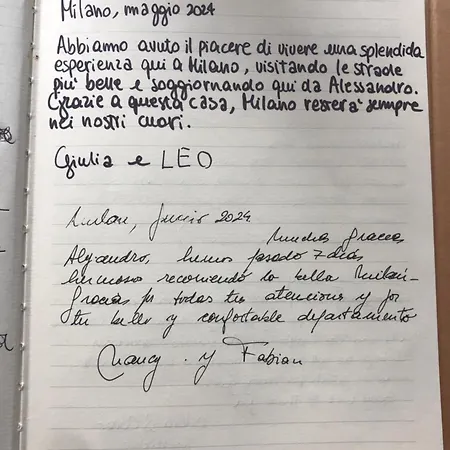 Milano, maggio 2024
Abbiamo avuto il piacere di vivere una splendida
esperienza qui a Milano, visitando le strade
più belle e soggiornando qui da Alessandro.
Grazie a questa casa, Milano resterà sempre
nei nostri cuori.
Giulia e LEO
Milan, Junio 2024
Muchas gracias
Alejandro, hemos pasado 7 días
hermosos recorriendo la bella Milán-
Gracias por todas tus atenciones y por
tu bello y confortable departamento
Nancy . y Fabian